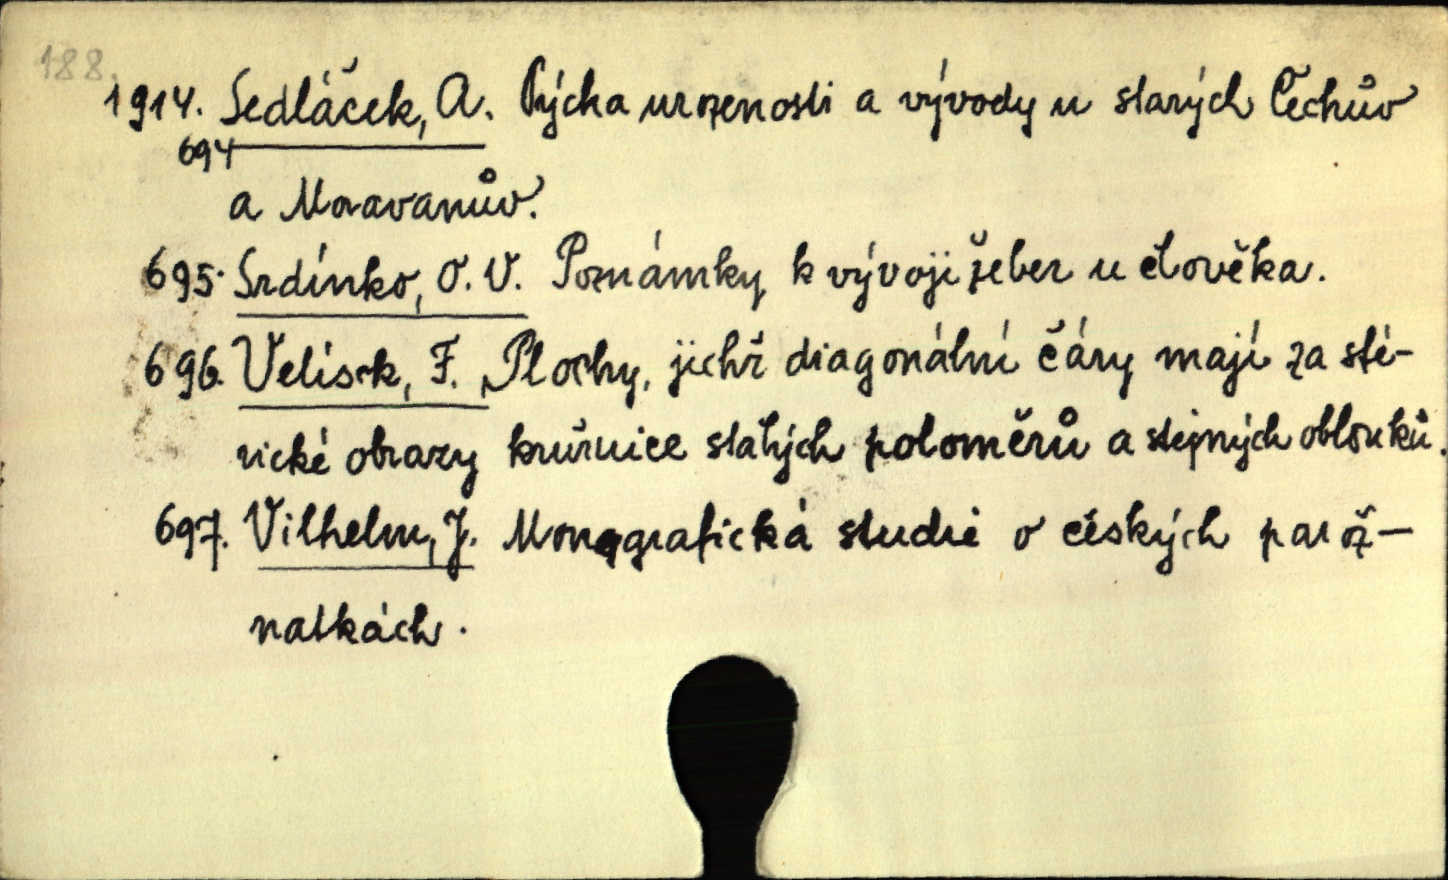 188.
1914. Sedláček, A. Pýcha urozenosti a vývody u starých Čechův
694
a Moravanův.
695. Srdínko, O. V. Poznámky k vývoji žeber u člověka.
696. Velísek, F. Plochy, jichž diagonální čáry mají za sfé-
rické obrazy kružnice stálých poloměrů a stejných oblouků.
697. Vilhelm, J. Monografická studie o českých parož-
natkách.